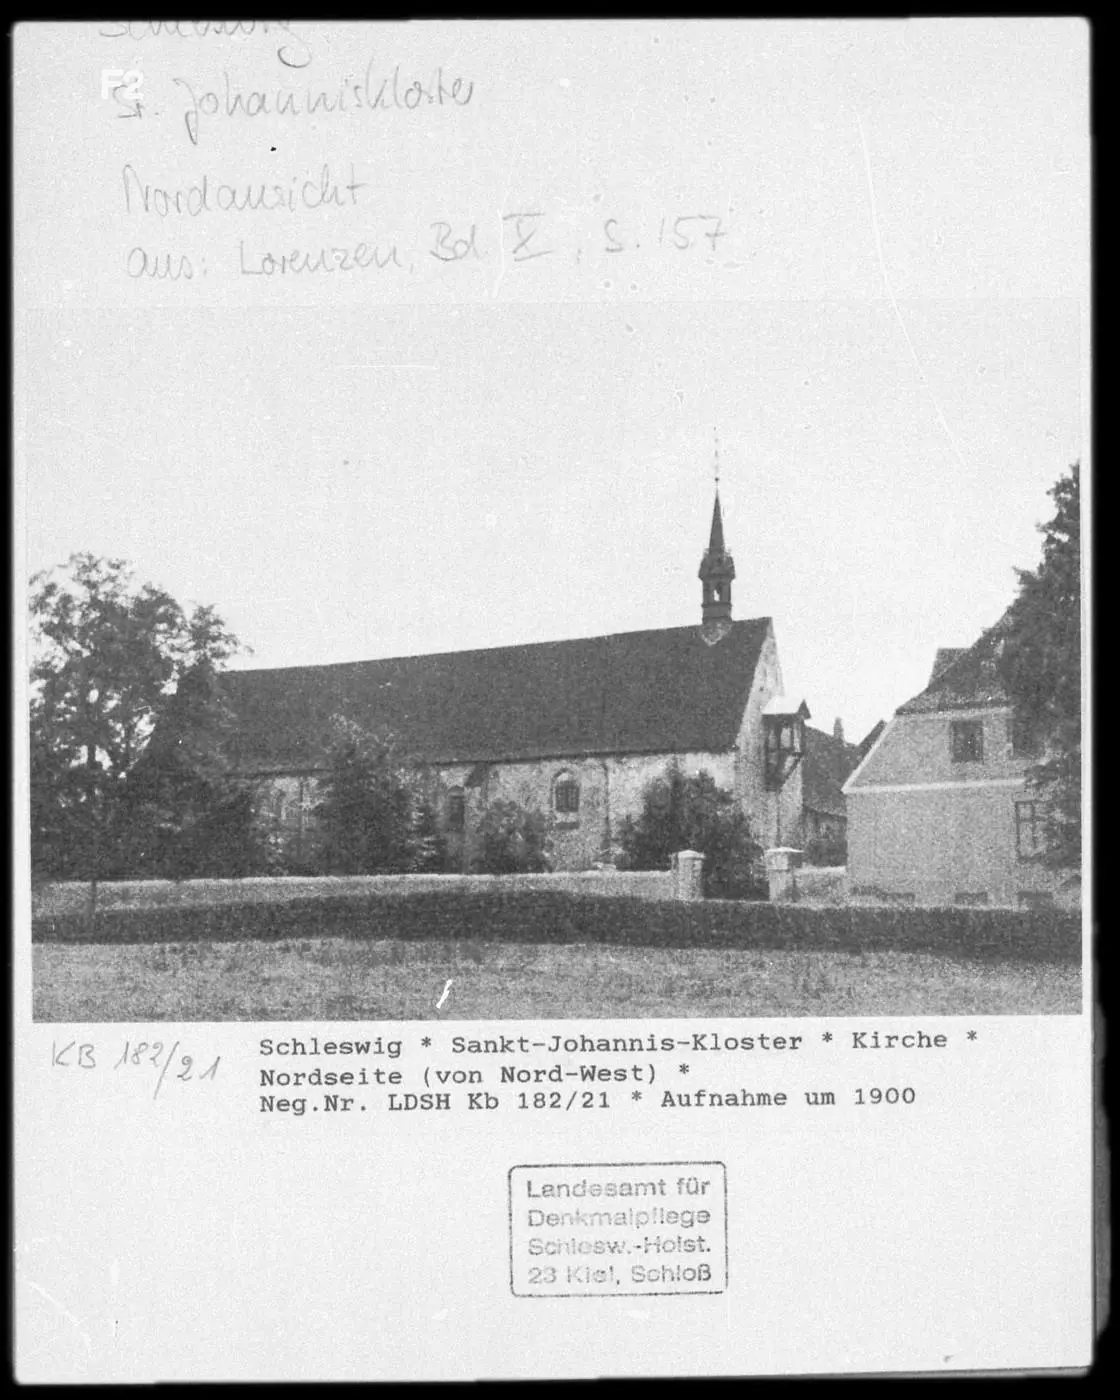 Schleswig
F2
St. Johanniskloster
Nordansicht
aus: Lorenzen, Bd. V, S. 157
KB 182/21
Schleswig * Sankt-Johannis-Kloster * Kirche *
Nordseite (von Nord-West) *
Neg.Nr. LDSH Kb 182/21 * Aufnahme um 1900
Landesamt für
Denkmalpflege
Schlesw.-Holst.
23 Kiel, Schloß